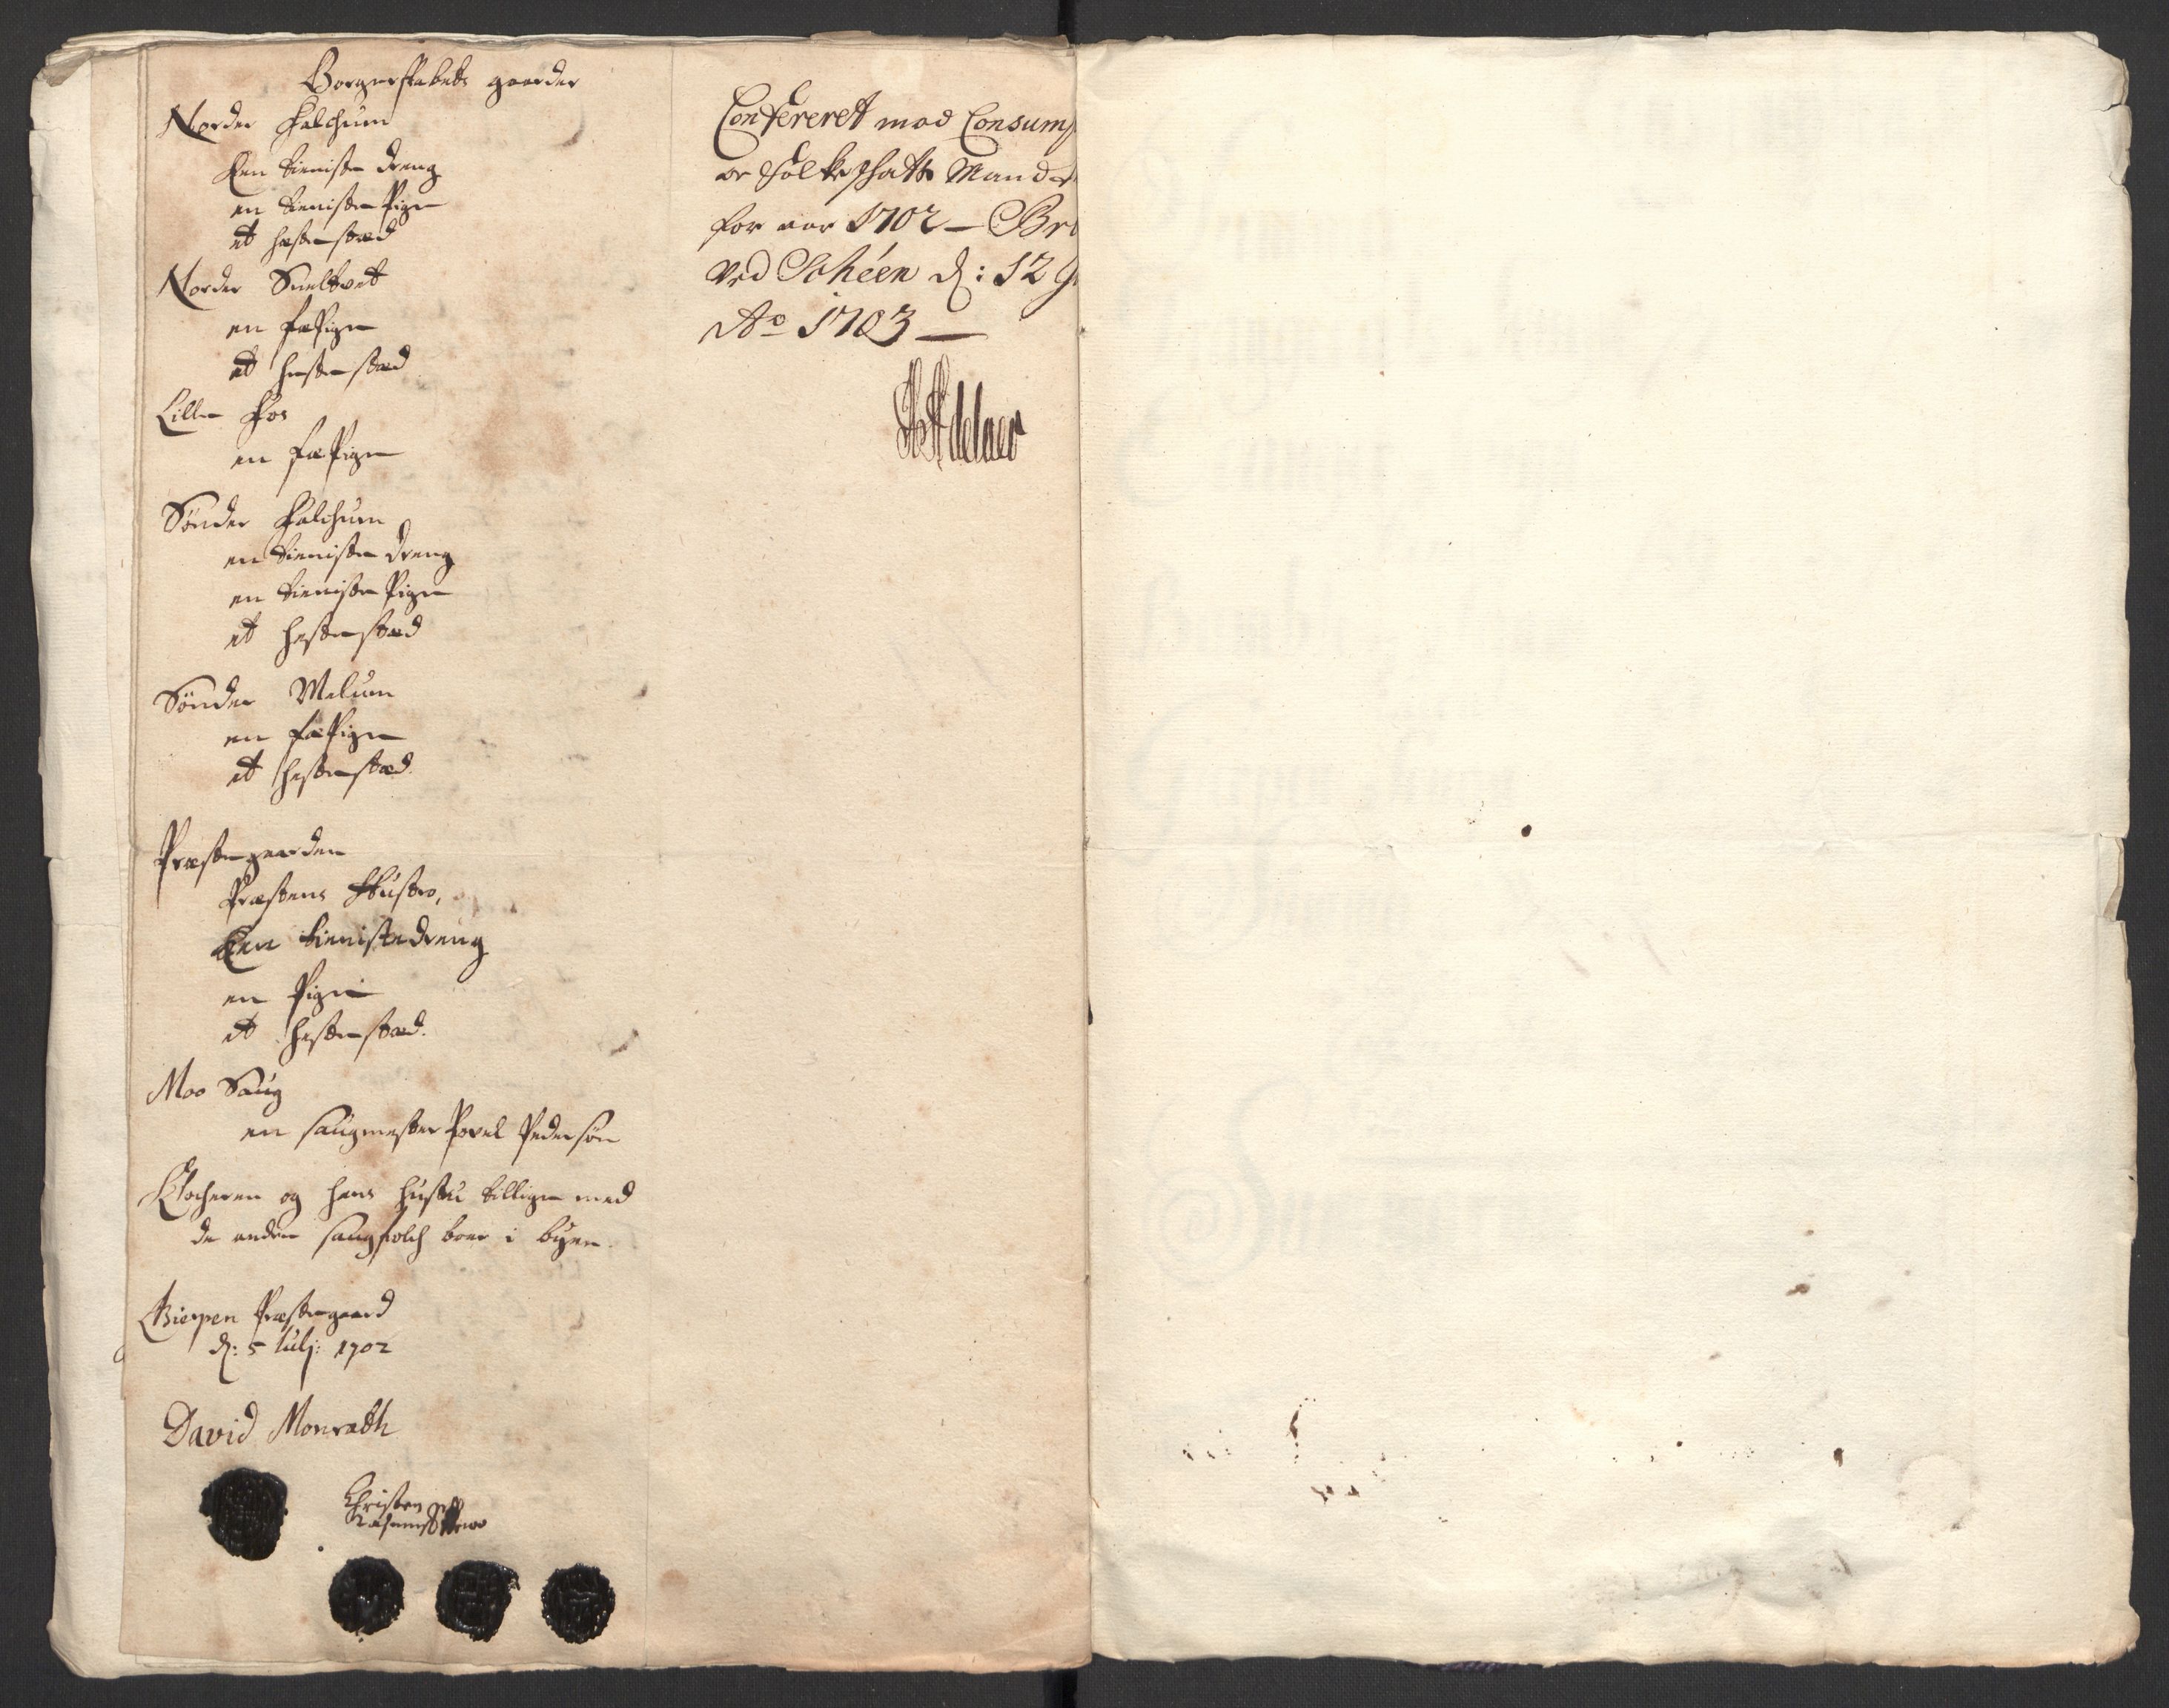 Borgerskabets gaarder
Norder Falchum
Een tieniste dreng
en tieniste Pige
et hestestæd
Norder Sneltvet
en fæPige
et hestestæd
Lille Fos
en fæPige
Sönder Falchum
en tieniste dreng
en tieniste Pige
et hestestæd
Sönder Melum
en fæPige
et hestestæd.
Præstegaarden
Præstens Hustro,
Een tienistedreng
en Pige
et hestestæd.
Moo Saug
en saugmester Povel Pedersön
Klocheren og hans hustru tillige med
de andre saugfolch boer i byen.
Gierpen Præstegaard
d: 5 Iulj: 1702
David Monrath
Christen
Conföreret mod Consump
or Folkeskatts Mandt
for aar 1702 — Br
ved Schéen d: 12
Ao 1703 —
Adelaer